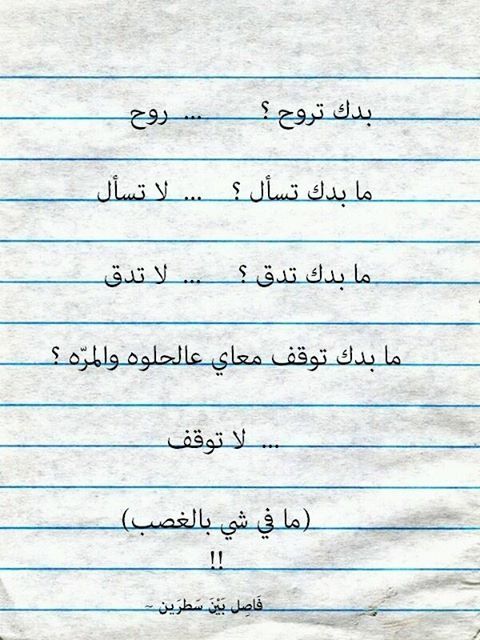 بدك تروح ؟ ... روح
ما بدك تسأل ؟ ... لا تسأل
ما بدك تدق ؟ ... لا تدق
ما بدك توقف معاي عالحلوه والمرّه ؟
... لا توقف
(ما في شي بالغصب)
!!
فَاصِل بَيْنَ سَطرَين ~